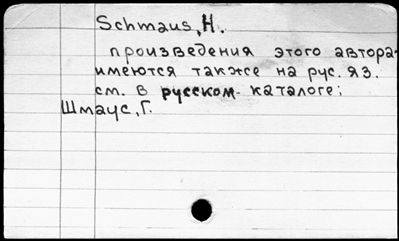 Schmaus, H.
произведения этого автора
имеются также на рус. яз.
см. в русском каталоге:
Шмаус, Г.